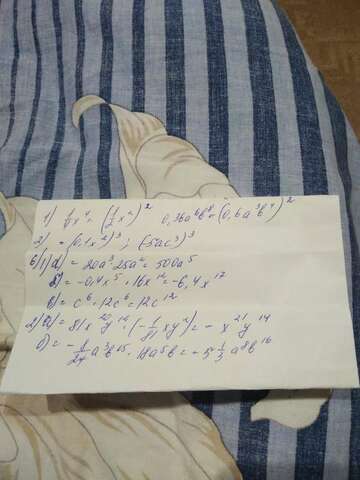 1) 1/4x⁴ = (1/2x²)² 0,36a⁶b⁸ = (0,6a³b⁴)²
2) = (0,1x²)³; (-5ac³)³
б) 1) а) = 20a³·25a² = 500a⁵
б) = -0,4x⁵·16x¹² = -6,4x¹⁷
в) = c⁶·12c⁶ = 12c¹²
2) а) = 81x²⁰y¹²·(-1/81xy²) = -x²¹y¹⁴
б) = -8/27a³b¹⁵·18a⁵b = -5 1/3a⁸b¹⁶